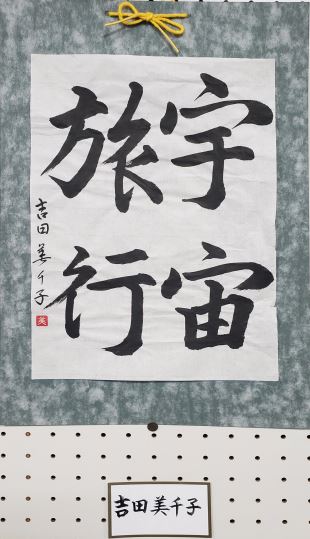 宇宙
旅行
吉田美千子
美
吉田美千子